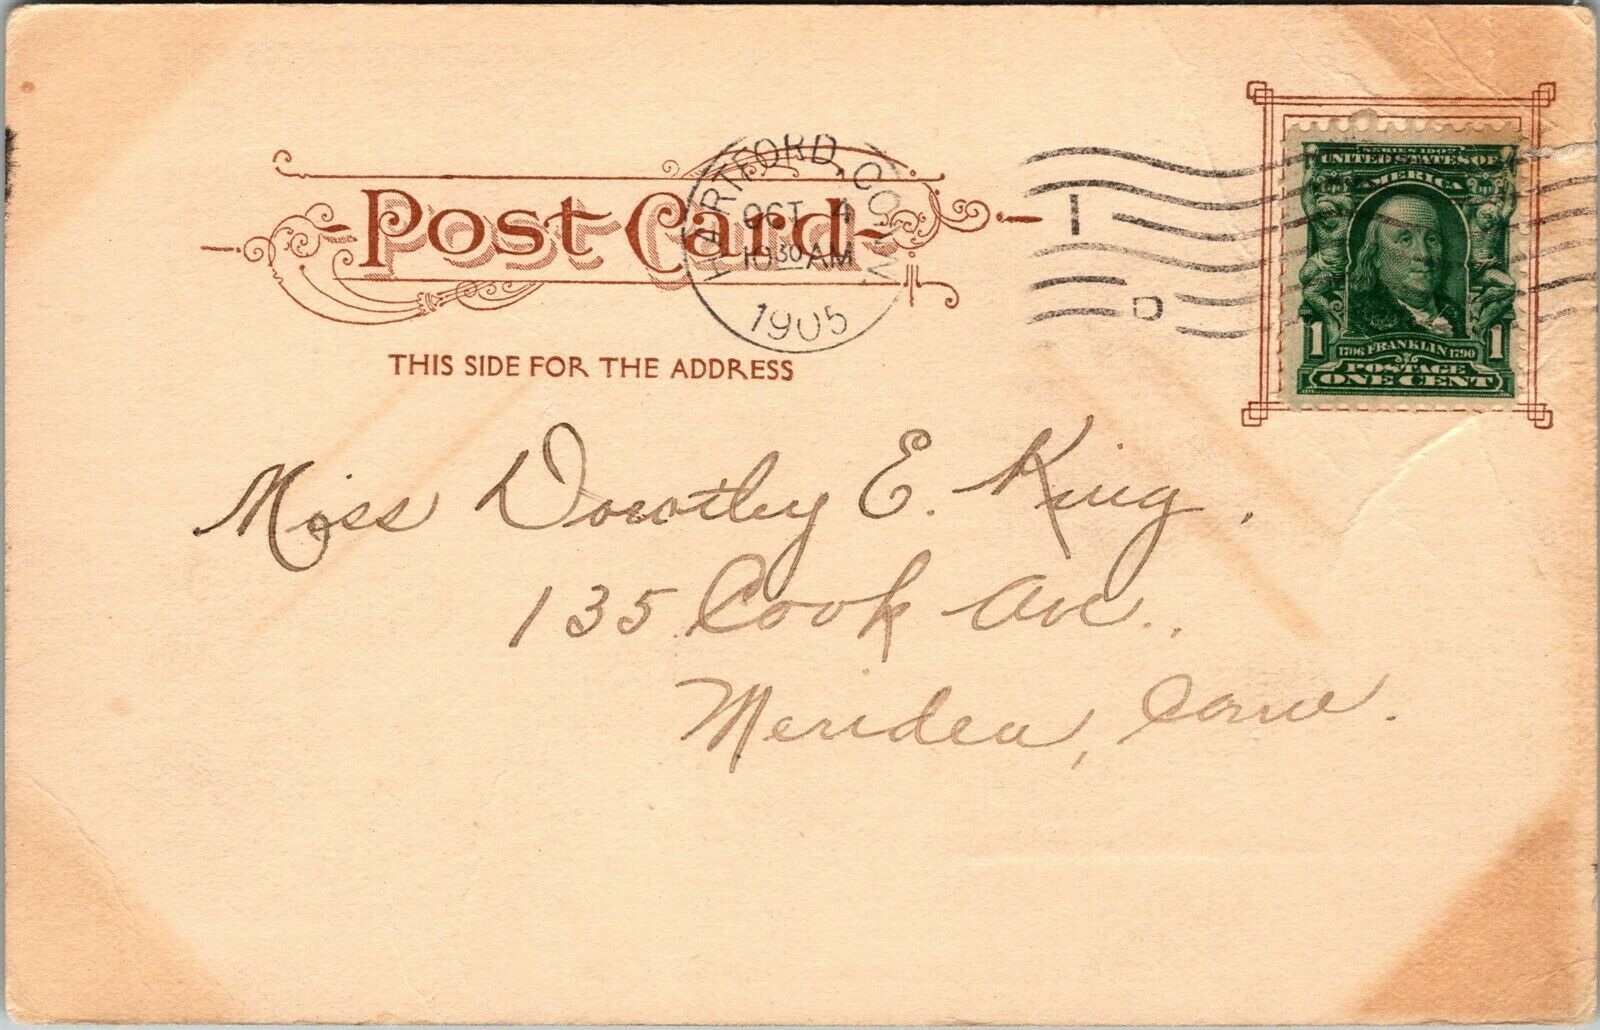 Post Card
HARTFORD, CONN.
OCT 4
10 30 AM
1905
1
D
SERIES 1902
UNITED STATES OF
AMERICA
1 1
1706 FRANKLIN 1790
POSTAGE
ONE CENT
THIS SIDE FOR THE ADDRESS
Miss Dorothy E. King.
135 Cook Ave.,
Meriden, Conn.